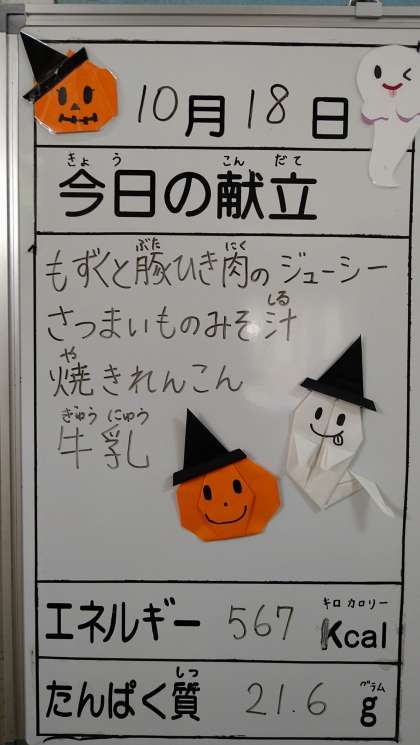 10月18日
きょう こんだて
今日の献立
ぶた にく
もずくと豚ひき肉のジューシー
しる
さつまいものみそ汁
や
焼きれんこん
ぎゅうにゅう
牛乳
キロカロリー
エネルギー 567 Kcal
しつ グラム
たんぱく質 21.6 g